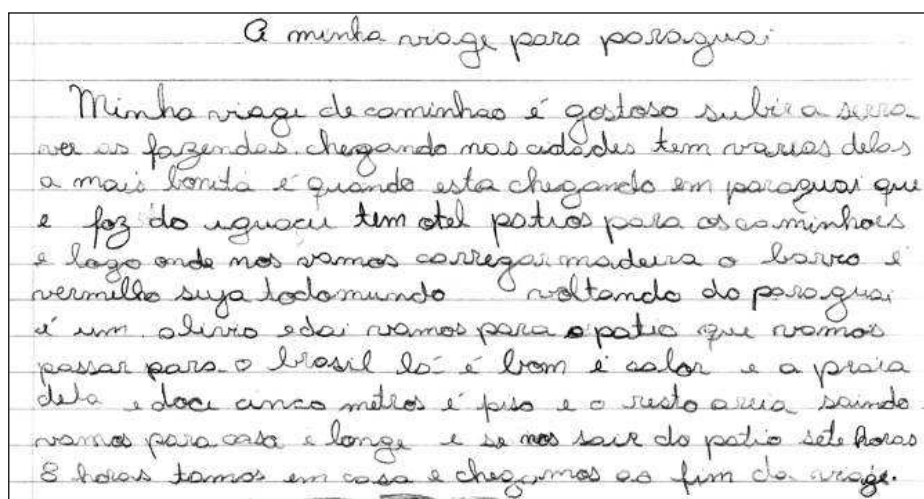 A minha viage para paraguai
Minha viage de caminhao é gostoso subir a serra
ver as fazendas. chegando nas cidades tem varias delas
a mais bonita é quando esta chegando em paraguai que
e foz do iguaçu tem otel patios para os caminhoes
e logo onde nos vamos carregar madeira o barro é
vermelho suja todo mundo voltando do paraguai
é um alivio e dai vamos para o patio que vamos
passar para o brasil lá é bom é calor e a praia
dela e doce cinco metros é piso e o resto areia saindo
vamos para casa é longe e se nos sair do patio sete horas
8 horas tamos em casa e chegamos ao fim da viage.